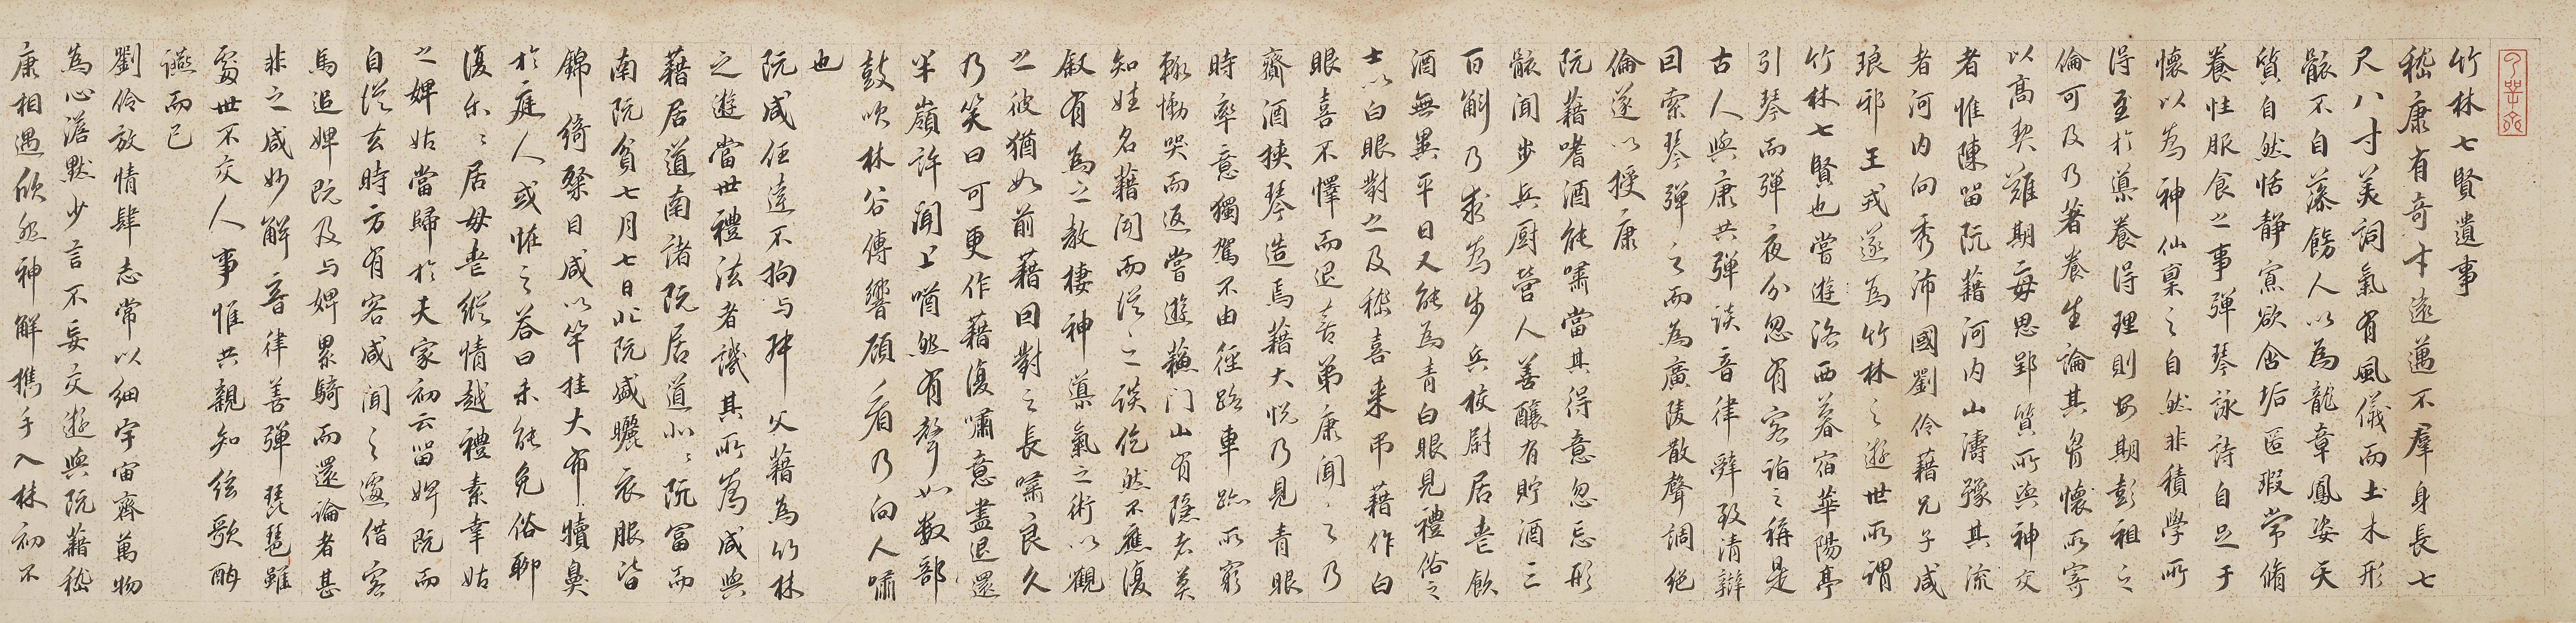 竹林七賢遺事
嵇康有奇才遠邁不羣身長七
尺八寸美詞氣有風儀而土木形
骸不自藻飾人以為龍章鳳姿天
質自然恬靜寡欲含垢匿瑕常脩
養性服食之事彈琴詠詩自足于
懷以為神仙稟之自然非積學所
得至於導養得理則安期彭祖之
倫可及乃著養生論其胷懷所寄
以高契難期每思郢質所與神交
者惟陳留阮藉河内山濤豫其流
者河内向秀沛國劉伶藉兄子咸
琅邪王戎遂為竹林之遊世所謂
竹林七賢也嘗遊洛西暮宿華陽亭
引琴而彈夜分忽有客詣之稱是
古人與康共彈談音律辭致清辯
回索琴彈之而為廣陵散聲調絶
倫遂以授康
阮藉嗜酒能嘯當其得意忽忘形
骸聞步兵厨營人善釀有貯酒三
百斛乃求為步兵校尉居喪飲
酒無異平日又能為青白眼見禮俗之
士以白眼對之及嵇喜来弔藉作白
眼喜不懌而退喜弟康聞之乃
齎酒挟琴造焉藉大悦乃見青眼
時率意獨駕不由徑路車跡所窮
輒慟哭而返嘗遊蘇门山有隱者莫
知姓名藉聞而從之談佗然不應復
叙有為之教棲神導氣之術以觀
之彼猶如前藉回對之長嘯良久
乃笑曰可更作藉復嘯意盡退還
半嶺許聞上㗜然有聲如數部
鼓吹林谷傳響顧看乃向人嘯
也
阮咸任達不拘与叔父藉為竹林
之遊當世禮法者譏其所為咸與
藉居道南諸阮居道北北阮富而
南阮貧七月七日北阮盛曬衣服皆
錦綺粲目咸以竿挂大布犢鼻
於庭人或怪之荅曰未能免俗聊
復尔尔居母喪縱情越禮素幸姑
之婢姑當歸於夫家初云留婢既而
自從去時方有客咸聞之遽借客
馬追婢既及与婢累騎而還論者甚
非之咸妙解音律善彈琵琶雖
處世不交人事惟共親知絃歌酣
讌而已
劉伶放情肆志常以細宇宙齊萬物
為心澹默少言不妄交遊與阮藉嵇
康相遇欣然神解攜手入林初不